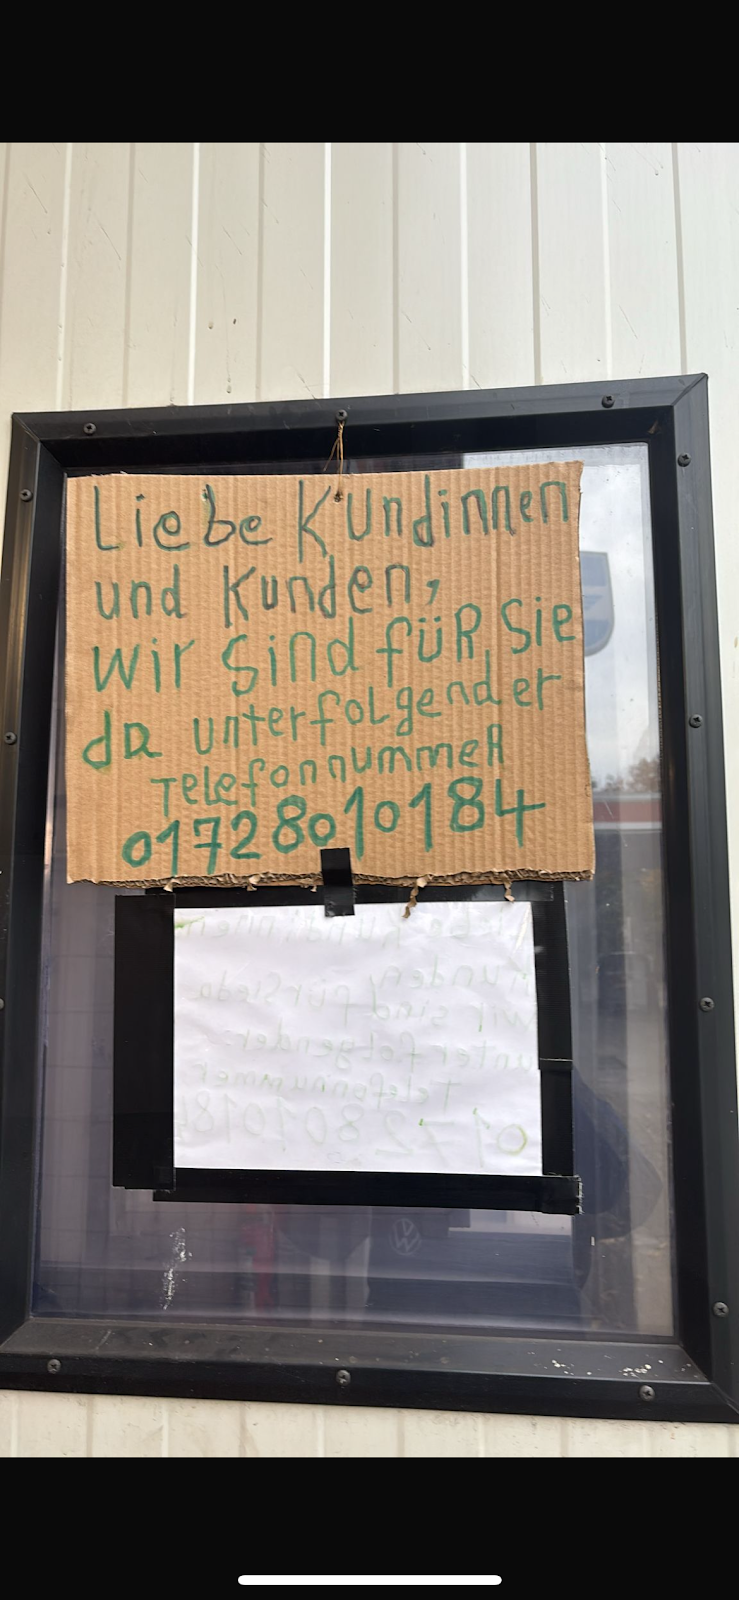 Liebe Kundinnen
und Kunden,
wir sind für Sie
da unter folgender
Telefonnummer
01728010184
Liebe Kundinnen
Kunden,
wir sind für Sie da
unter folgender
Telefonnummer
01728010184